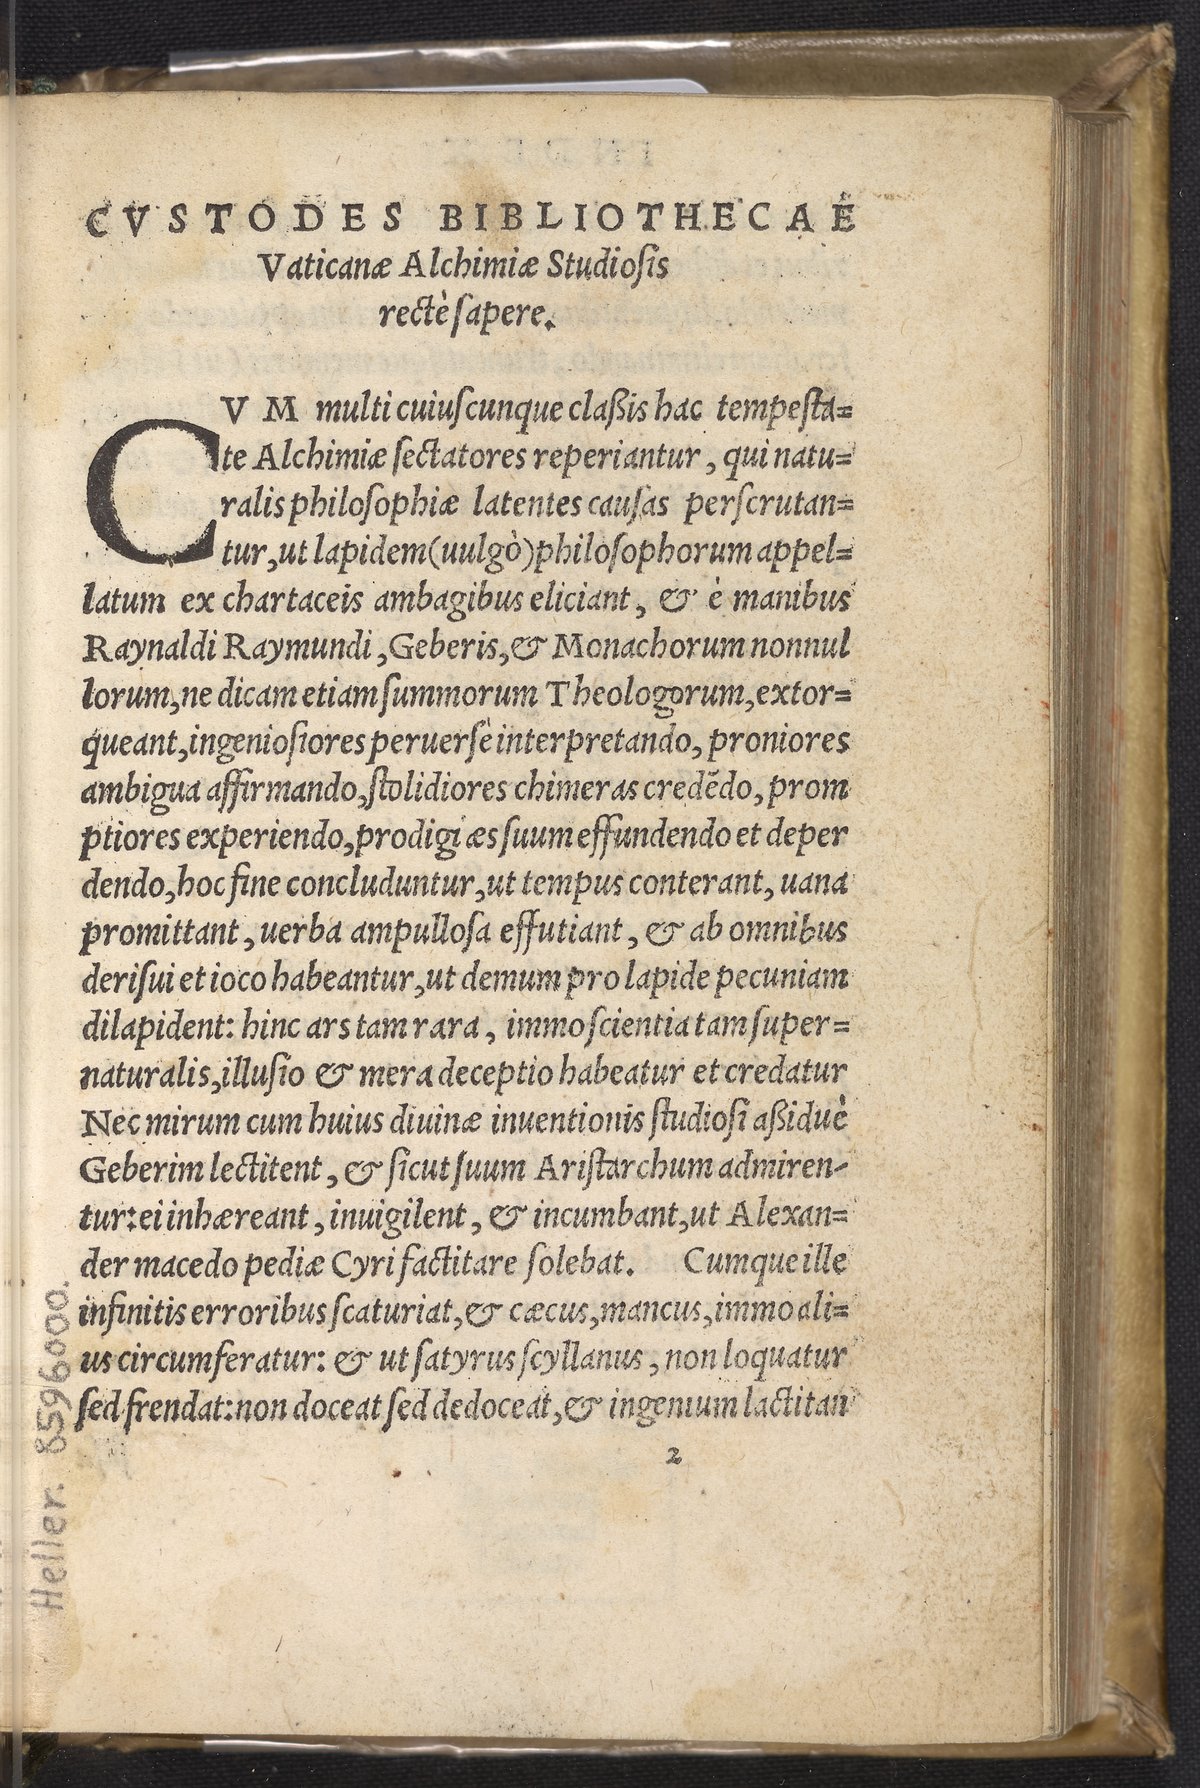 CVSTODES BIBLIOTHECAE
Vaticanæ Alchimiæ Studioſis
rectè ſapere.
CVM multi cuiuſcunque claßis hac tempeſta=
te Alchimiæ ſectatores reperiantur, qui natu=
ralis philoſophiæ latentes cauſas perſcrutan=
tur, ut lapidem (uulgò) philoſophorum appel=
latum ex chartaceis ambagibus eliciant, & è manibus
Raynaldi Raymundi, Geberis, & Monachorum nonnul
lorum, ne dicam etiam ſummorum Theologorum, extor=
queant, ingenioſiores peruerſè interpretando, proniores
ambigua affirmando, ſtolidiores chimeras credēdo, prom
ptiores experiendo, prodigi æs ſuum effundendo et deper
dendo, hoc fine concluduntur, ut tempus conterant, uana
promittant, uerba ampulloſa effutiant, & ab omnibus
deriſui et ioco habeantur, ut demum pro lapide pecuniam
dilapident: hinc ars tam rara, immo ſcientia tam ſuper=
naturalis, illuſio & mera deceptio habeatur et credatur
Nec mirum cum huius diuinæ inuentionis ſtudioſi aßiduè
Geberim lectitent, & ſicut ſuum Ariſtarchum admiren-
tur: ei inhæreant, inuigilent, & incumbant, ut Alexan=
der macedo pediæ Cyri factitare ſolebat. Cumque ille
infinitis erroribus ſcaturiat, & cæcus, mancus, immo ali=
us circumferatur: & ut ſatyrus ſcyllanus, non loquatur
ſed frendat: non doceat ſed dedoceat, & ingenium lactitan
2
Heller. 8596000.